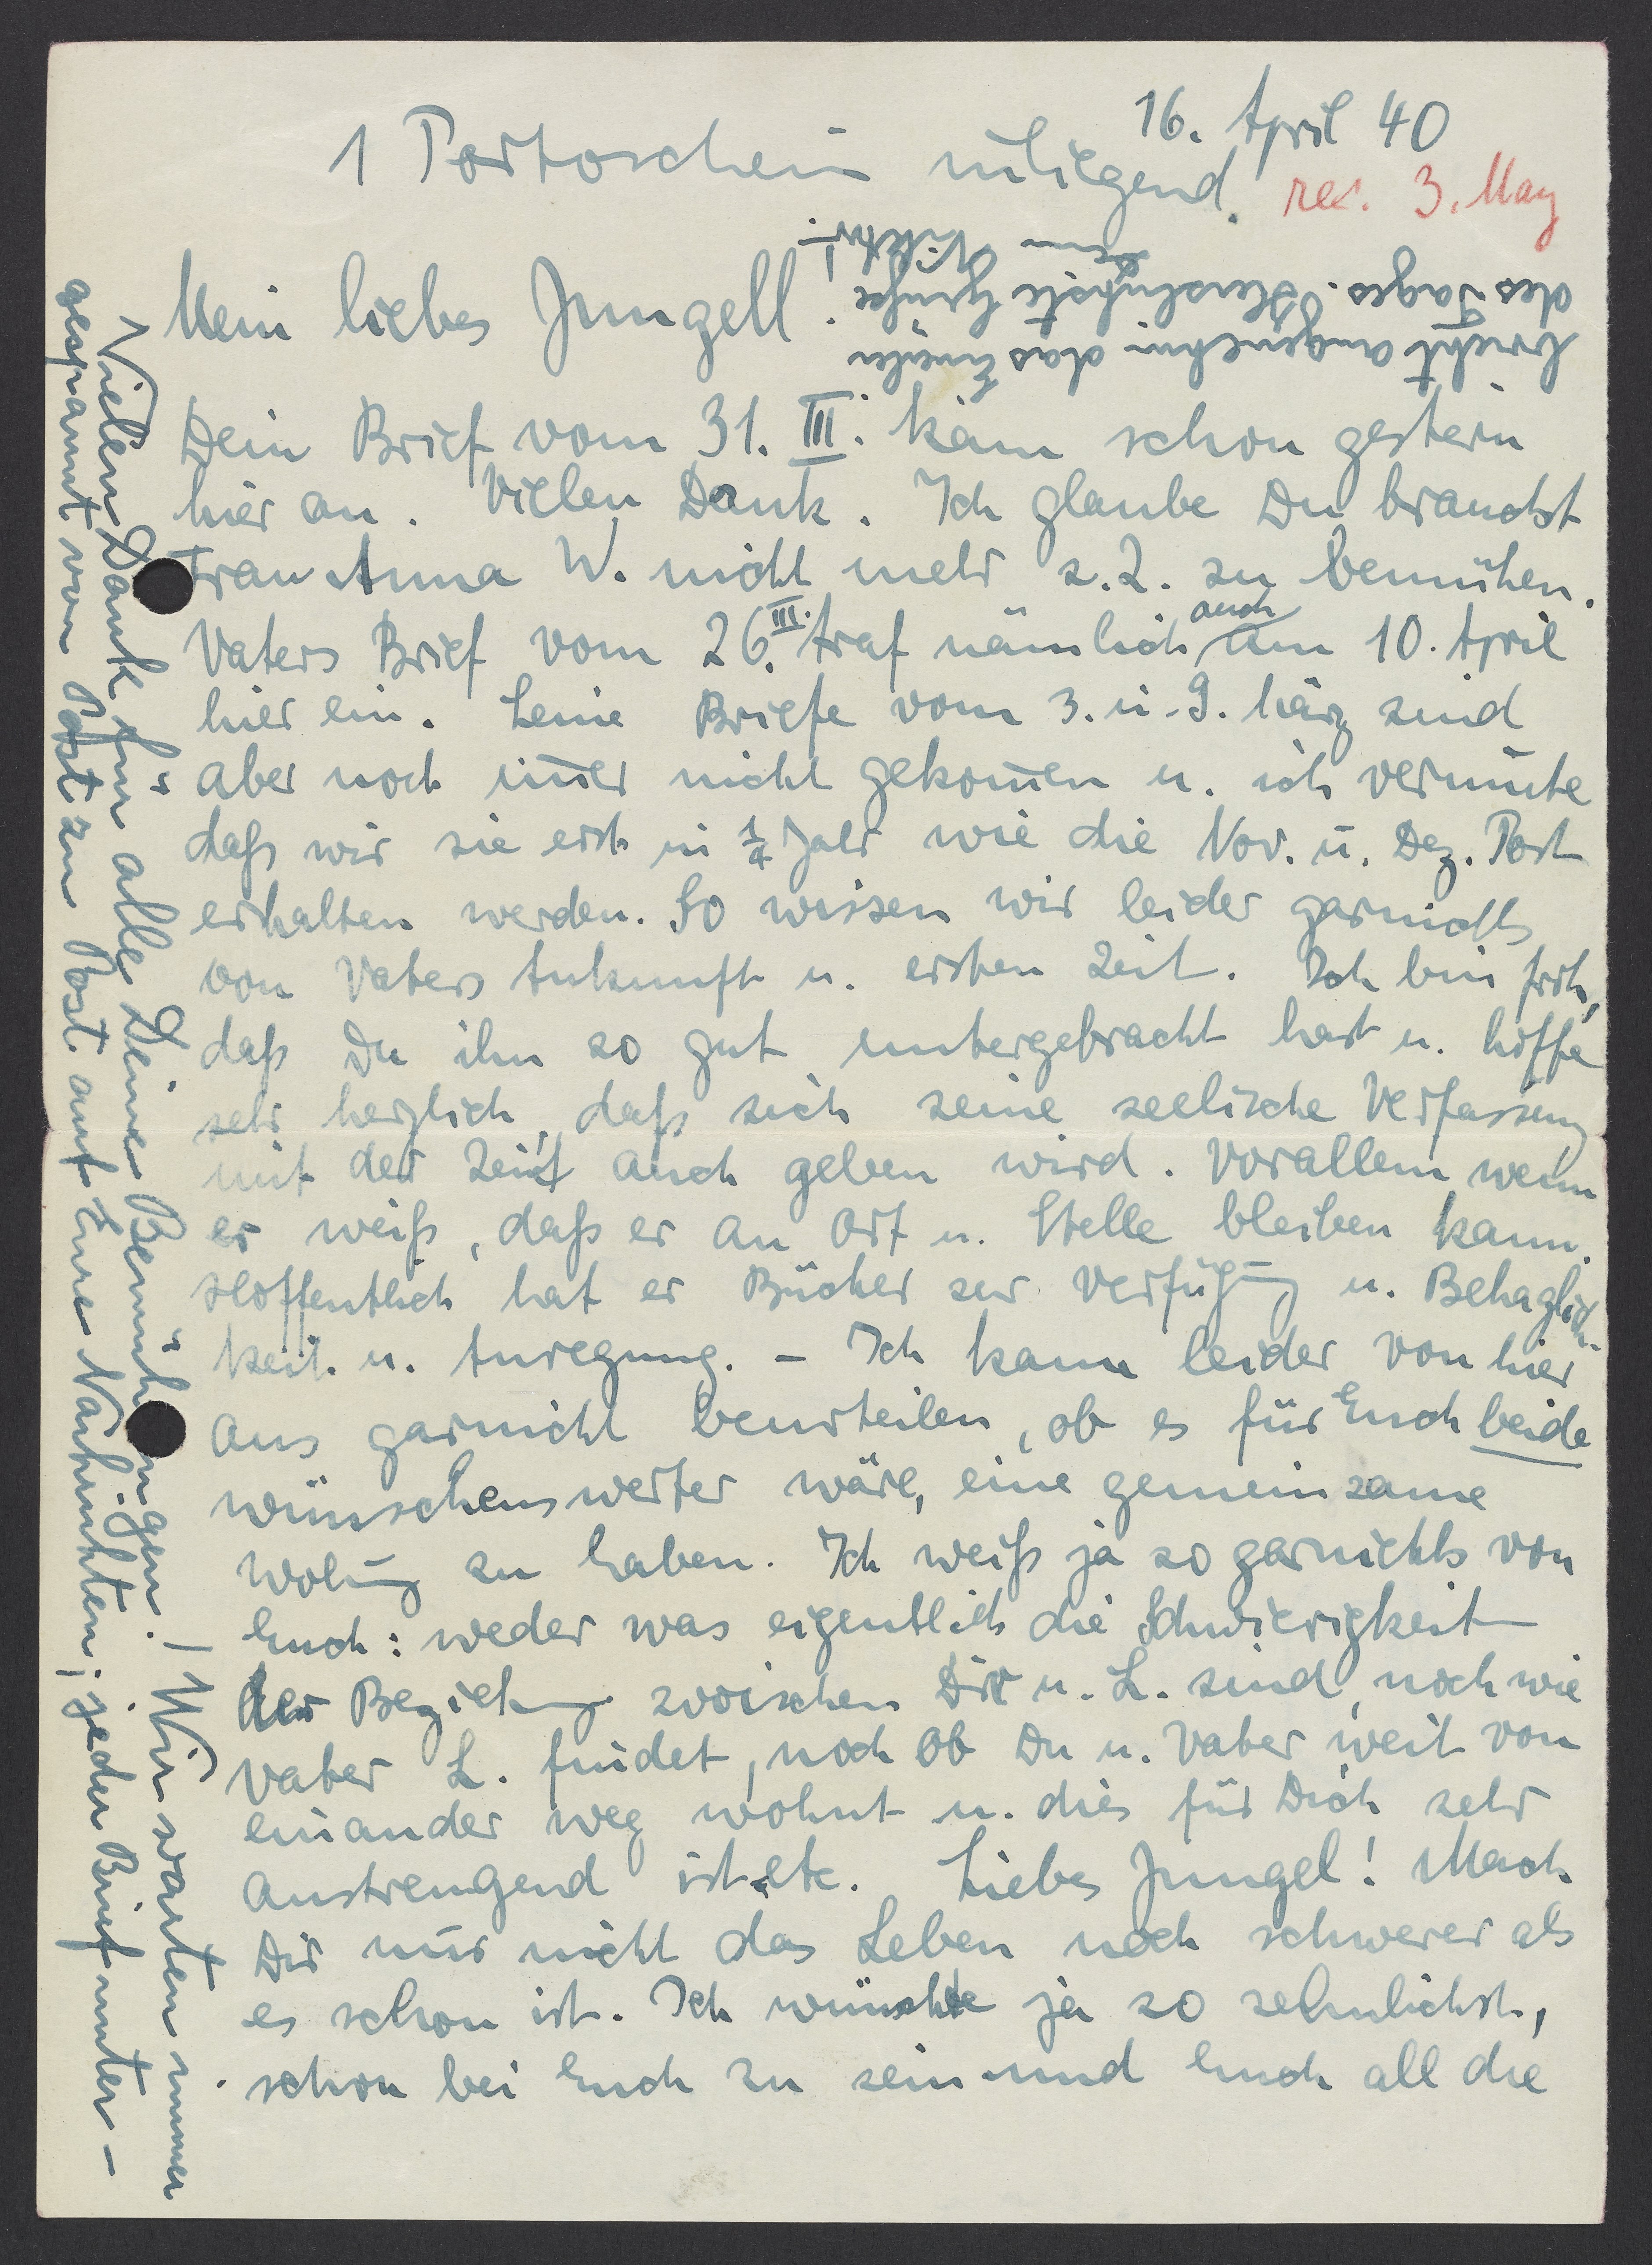 16. April 40
1 Portoschein inliegend.
rec. 3. May
Mein liebes Jungell!
Dein Brief vom 31. III. kam schon gestern
hier an. Vielen Dank. Ich glaube Du brauchst
Frau Anna W. nicht mehr z. Z. zu bemühen.
Vaters Brief vom 26. III. traf nämlich auch am 10. April
hier ein. Seine Briefe vom 3. u. 9. März sind
aber noch im̅er nicht gekom̅en u. ich vermute
daß wir sie erst in ¼ Jahr wie die Nov. u. Dez. Post
erhalten werden. So wissen wir leider garnichts
von Vaters Ankunft u. ersten Zeit. Ich bin froh,
daß Du ihn so gut untergebracht hast u. hoffe
sehr herzlich, daß sich seine seelische Verfassung
mit der Zeit auch geben wird. Vorallem wenn
er weiß, daß er an Ort u. Stelle bleiben kann.
Hoffentlich hat er Bücher zur Verfügung u. Behaglich-
keit u. Anregung. – Ich kann leider von hier
aus garnicht beurteilen, ob es für Euch beide
wünschenswerter wäre, eine gemeinsame
Wohng zu haben. Ich weiß ja so garnichts von
Euch: weder was eigentlich die Schwierigkeit
der Beziehung zwischen Dir u. L. sind, noch wie
Vater L. findet, noch ob Du u. Vater weit von
einander weg wohnt u. dies für Dich sehr
anstrengend ist etc. Liebes Jungel! Mach
Dir nur nicht das Leben noch schwerer als
es schon ist. Ich wünschte ja so sehnlichst,
schon bei Euch zu sein und Euch all die
Vielen Dank für alle Deine Bemühungen. – Wir warten immer
gespannt von Post zu Post auf Eure Nachrichten; jeder Brief unter-
bricht angenehm das Einerlei
des Tages. Herzlichste Grüße
Dein Viktor.